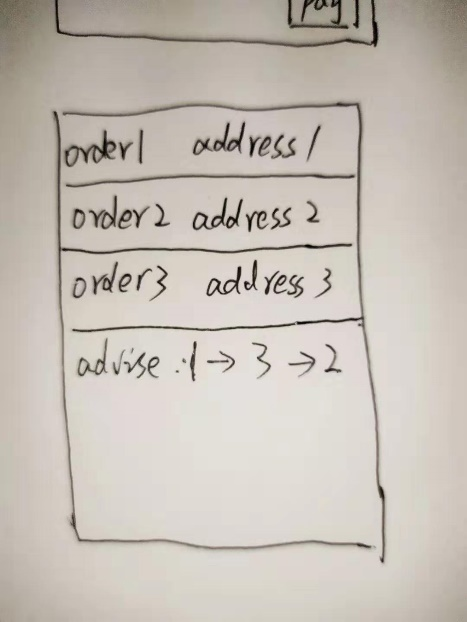 pay
order1 address1
order2 address2
order3 address3
advise :1→3→2